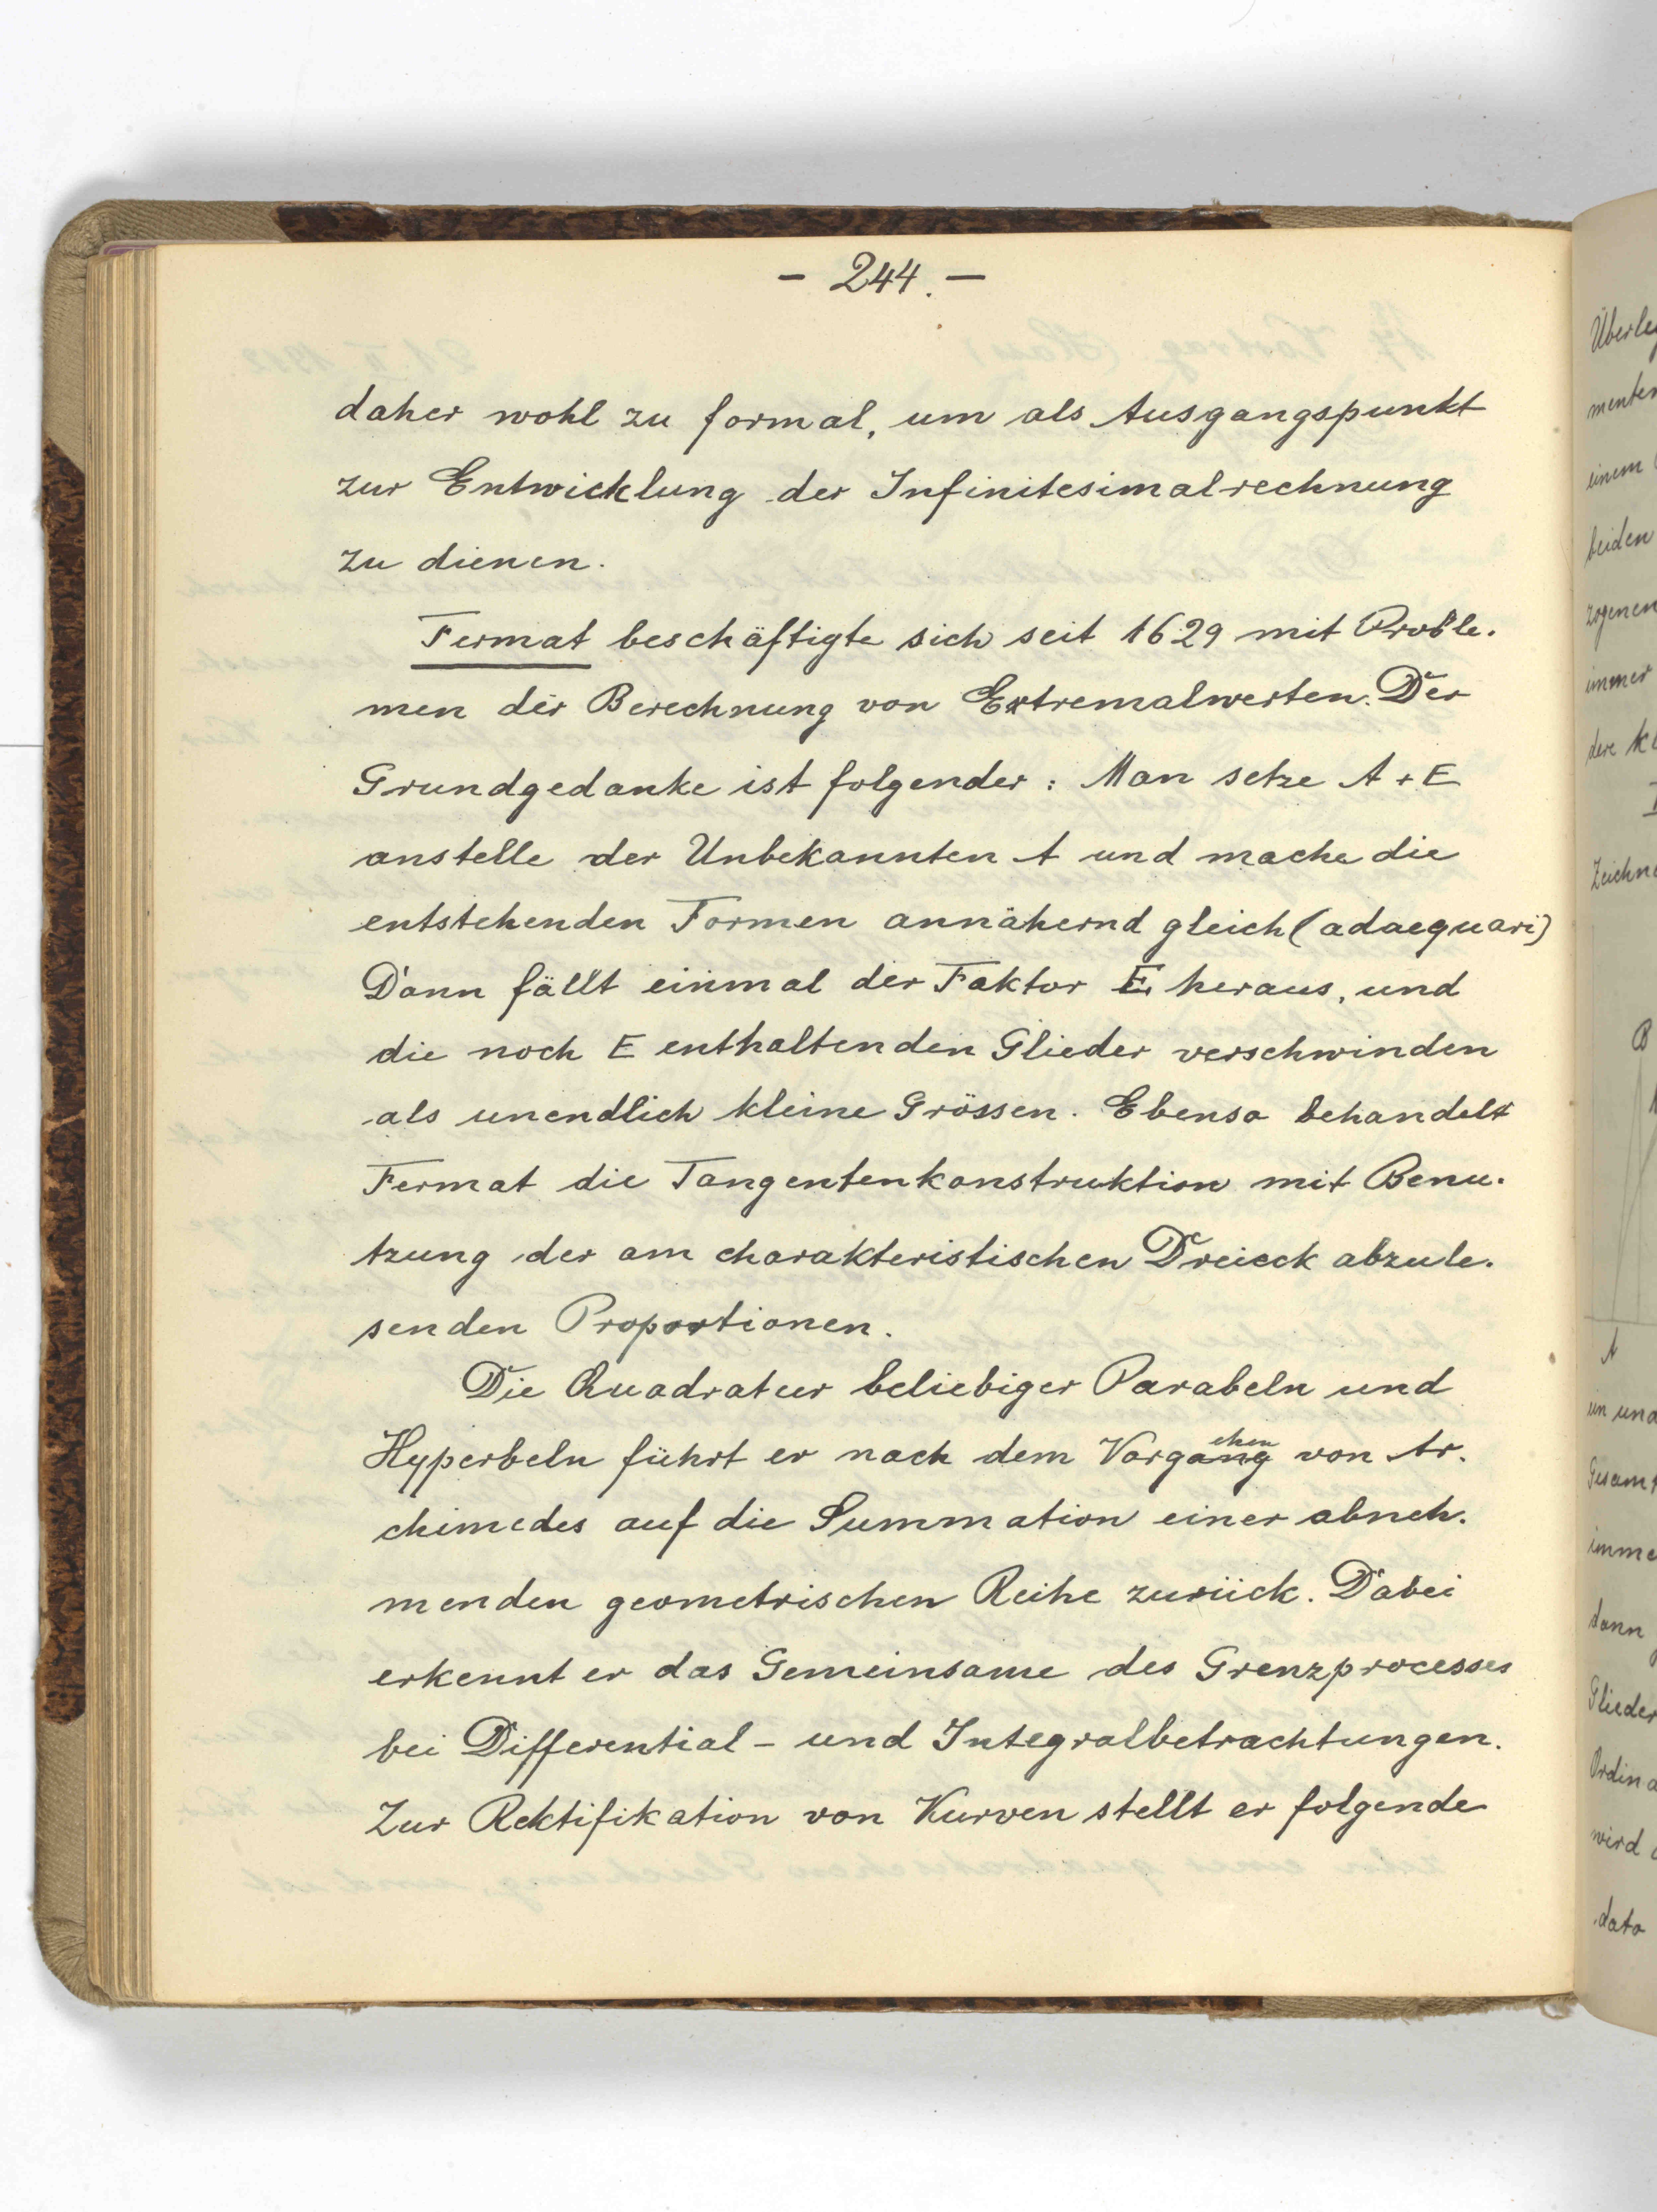 - 244. -
daher wohl zu formal, um als Ausgangspunkt
zur Entwicklung der Infinitesimalrechnung
zu dienen.
Fermat beschäftigte sich seit 1629 mit Proble-
men der Berechnung von Extremalwerten. Der
Grundgedanke ist folgender: Man setze A + E
anstelle der Unbekannten A und mache die
entstehenden Formen annähernd gleich (adaequari)
Dann fällt einmal der Faktor E heraus, und
die noch E enthaltenden Glieder verschwinden
als unendlich kleine Grössen. Ebenso behandelt
Fermat die Tangentenkonstruktion mit Benu-
tzung der am charakteristischen Dreieck abzule-
senden Proportionen.
Die Quadratur beliebiger Parabeln und
Hyperbeln führt er nach dem Vorgehen von Ar-
chimedes auf die Summation einer abneh-
menden geometrischen Reihe zurück. Dabei
erkennt er das Gemeinsame des Grenzprocesses
bei Differential- und Integralbetrachtungen.
Zur Rektifikation von Kurven stellt er folgende
Überle
menten
einem
beiden
zogenen
immer
dere
Zeichn
B
A
ein und
Gesamt
imme
dann
Glieder
Ordina
wird
dato